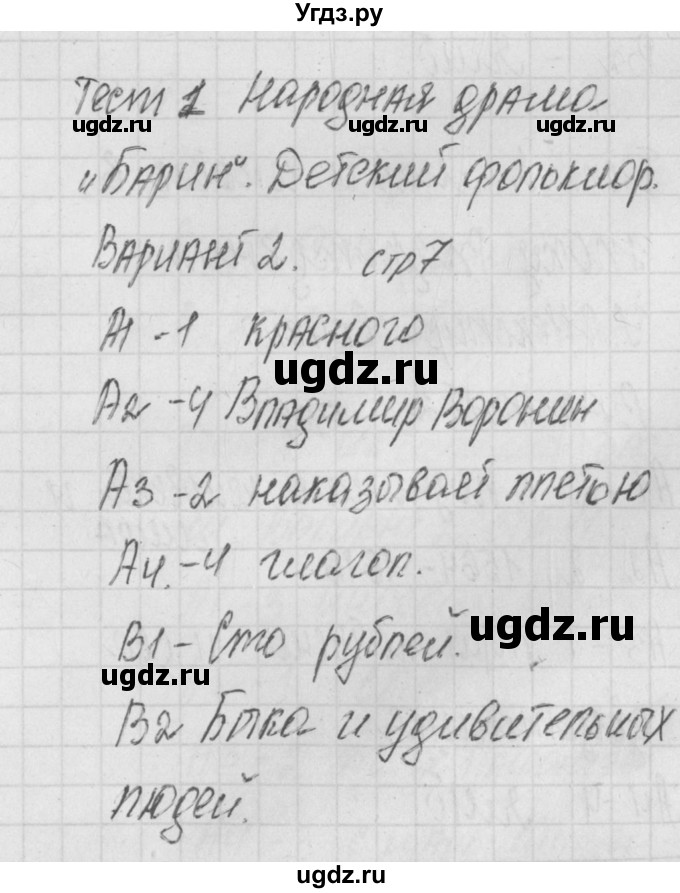 Угдз.ру
Тест 1 Народная драма
ugdz.ru ugdz.ru ugdz.ru
„Барин“. Детский фольклор.
Вариант 2. стр 7
А1 - 1 красного
ugdz.ru
А2 - 4 Владимир Воронин
А3 - 2 наказывает плетью
А4. - 4 глагол.
В1 - Сто рублей.
ugdz.ru
ugdz.ru
В2 Быка и удивительных
людей.
ugdz.ru